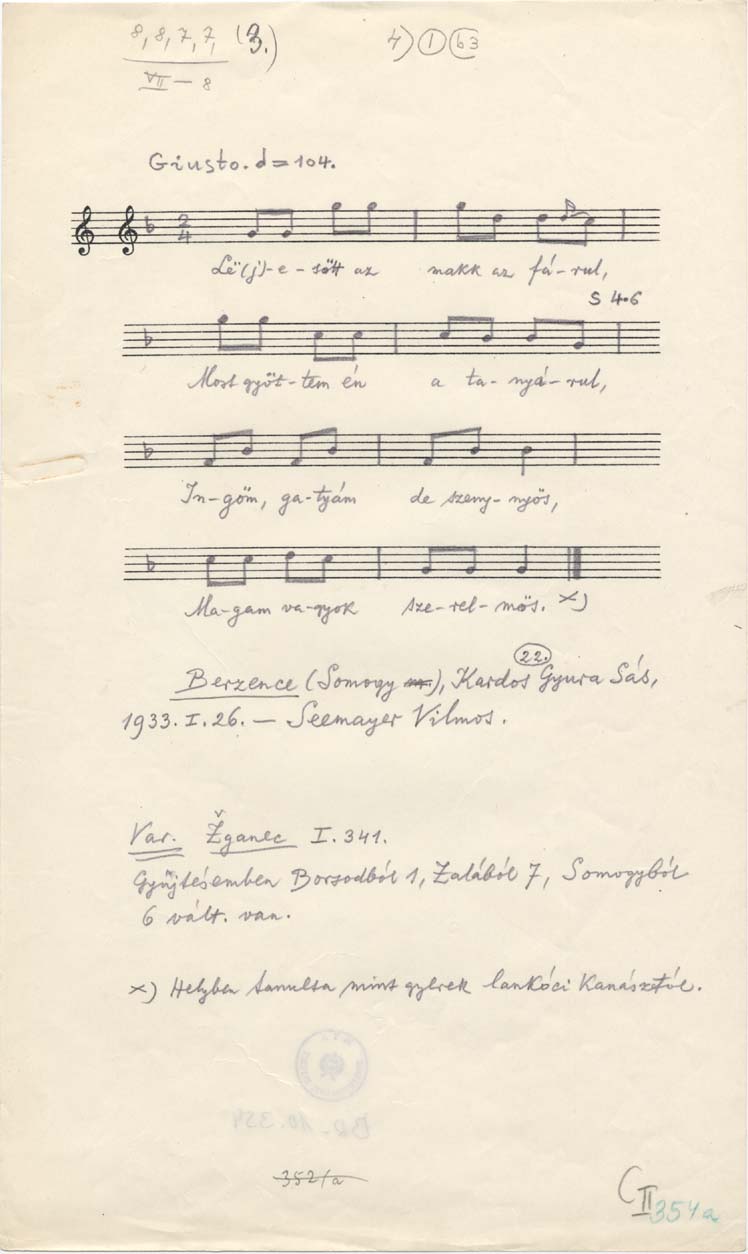 8, 8, 7, 7, (3.) 4) 1 b3
VII — 8
Giusto. d = 104.
2
4
Lë(j)-e-sött az makk az fá-rul,
S 4.6
Most gyöt-tem én a ta-nyá-rul,
In-göm, ga-tyám de szeny-nyös,
Ma-gam va-gyok sze-rel-mös. x)
22.
Berzence (Somogy), Kardos Gyura Sás,
1933. I. 26. — Seemayer Vilmos.
Var. Žganec I. 341.
Gyűjtésemben Borsodból 1, Zalából 7, Somogyból
6 vált. van.
x) Helyben tanulta mint gyerek lankóci Kanásztól.
352/a
C II 354a